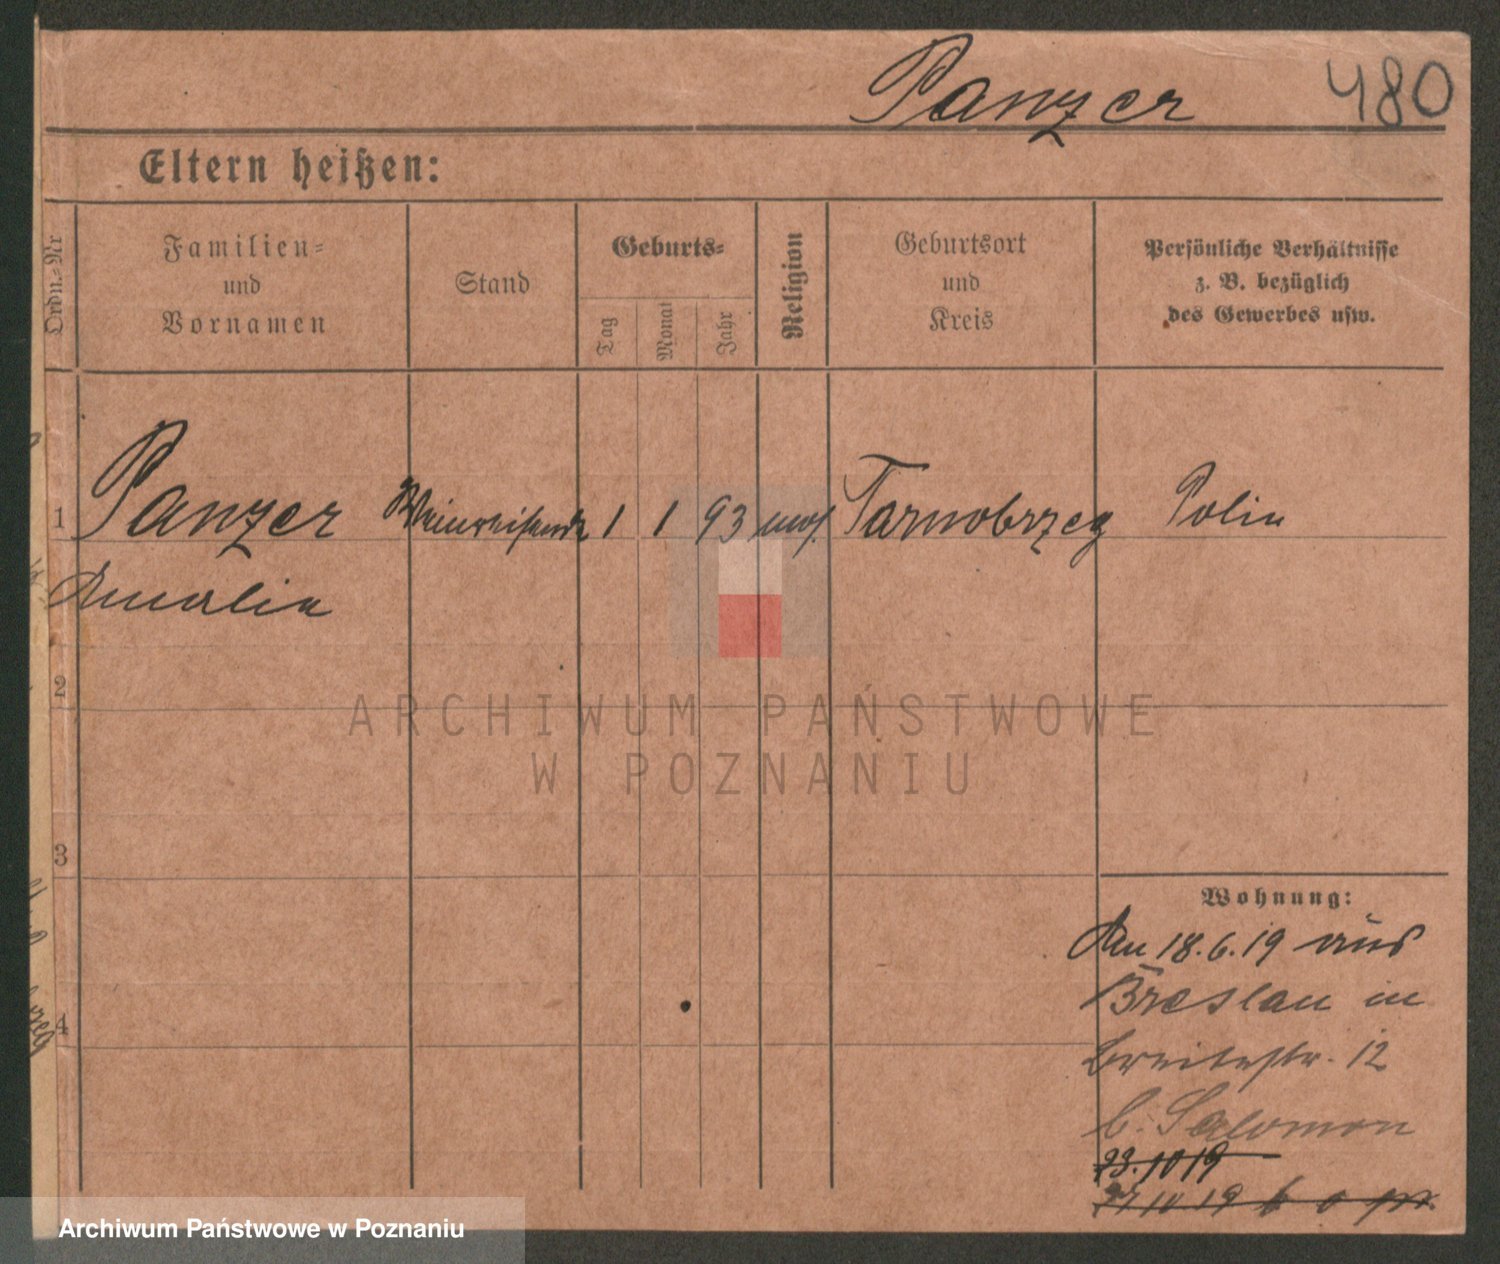 Panzer 480
Eltern heißen:
Ordn.=Nr
Familien=
und
Vornamen
Stand
Geburts=
Tag
Monat
Jahr
Religion
Geburtsort
und
Kreis
Persönliche Verhältnisse
z. B. bezüglich
des Gewerbes usw.
1 Panzer 1 1 93 mos. Tarnobrzeg Polin
Amalia
2
ARCHIWUM PAŃSTWOWE
W POZNANIU
3
Wohnung:
Am 18.6.19 aus
Breslau in
4
Breitestr. 12
b. Salomon
23.10 19
27 10 19
Archiwum Państwowe w Poznaniu